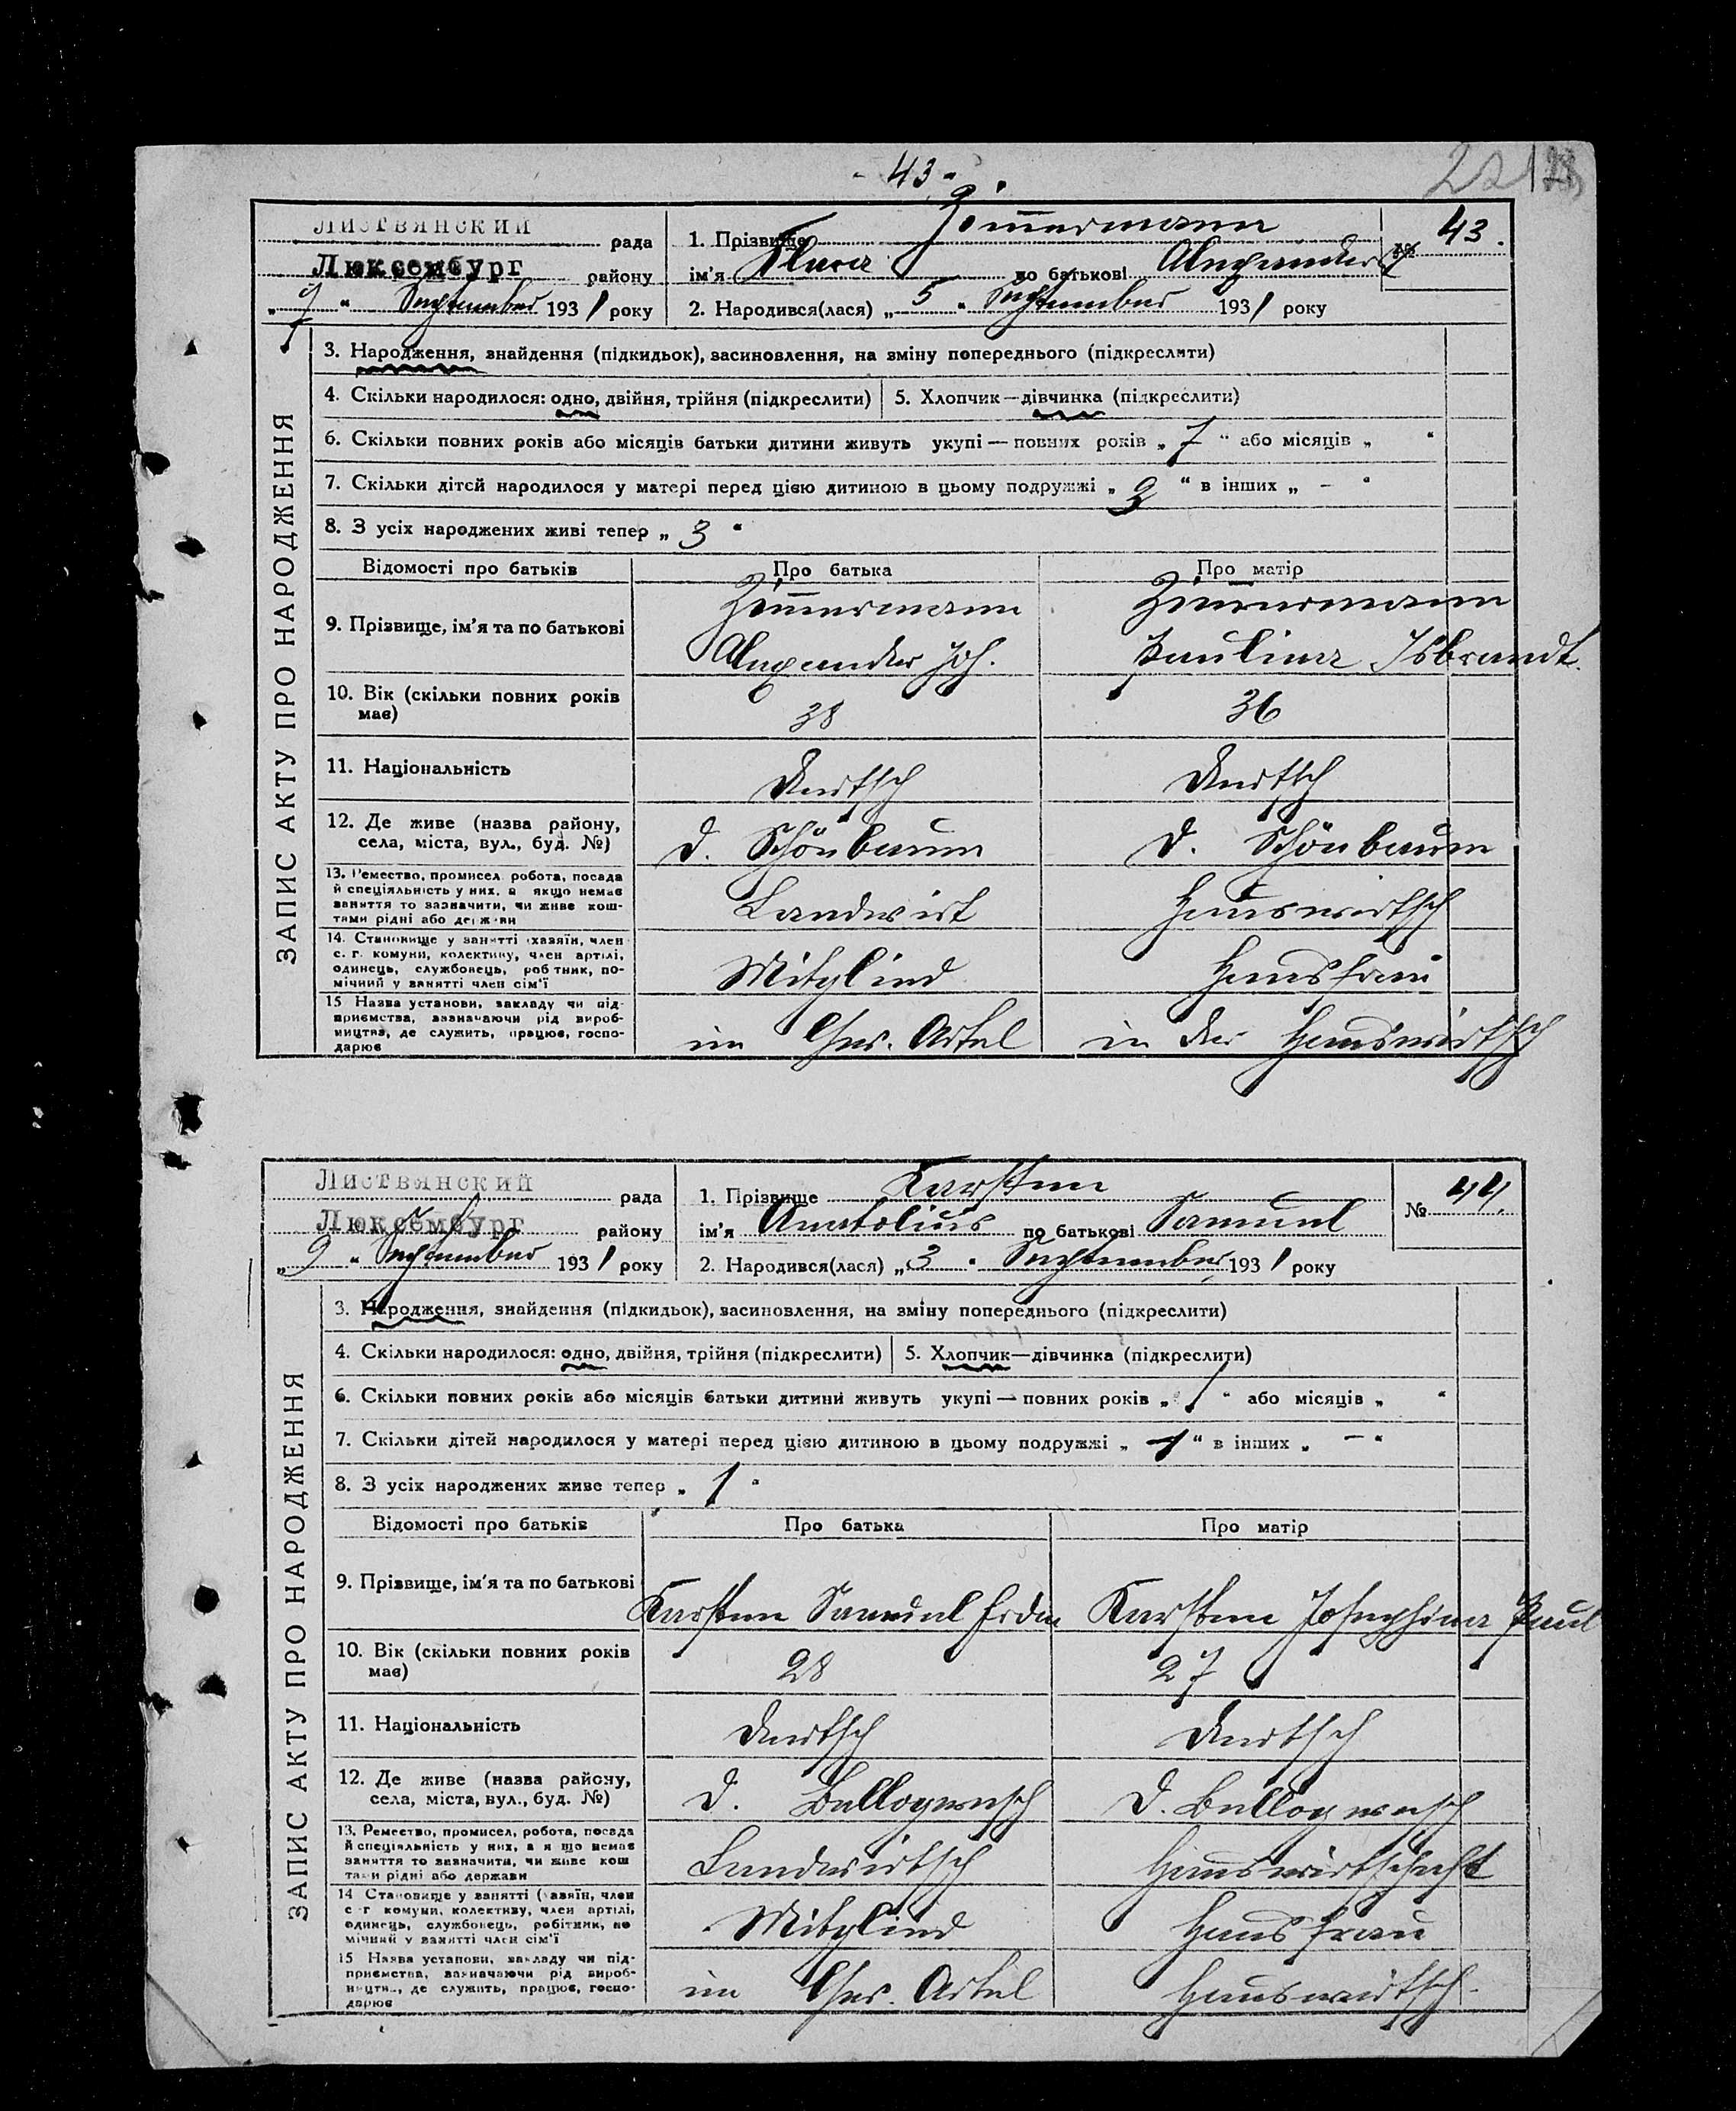 - 43 -
22
ЛИСТВЯНСКИЙ рада
Люксембург району
„ 9 “ September 1931 року
1. Прізвище Zimmermann
ім’я Flura по батькові Alexander
№ 43.
2. Народився(лася) „ 5 “ September 1931 року
ЗАПИС АКТУ ПРО НАРОДЖЕННЯ
3. Народження, знайдення (підкидьок), засиновлення, на зміну попереднього (підкреслити)
4. Скільки народилося: одно, двійня, трійня (підкреслити) 5. Хлопчик—дівчинка (підкреслити)
6. Скільки повних років або місяців батьки дитини живуть укупі — повних років „ 7 “ або місяців „ “
7. Скільки дітей народилося у матері перед цією дитиною в цьому подружжі „ “ в інших „ - “
8. З усіх народжених живі тепер „ 3 “
Відомості про батьків Про батька Про матір
9. Прізвище, ім’я та по батькові
Zimmermann Zimmermann
Alexander Joh. Paulina Isbrandt.
10. Вік (скільки повних років має) 38 36
11. Національність Deutsch Deutsch
12. Де живе (назва району, села, міста, вул., буд. №) D. Schönbaum D. Schönbaum
13. Ремество, промисел, робота, посада
й спеціяльність у них, а якщо немає
заняття то зазначити, чи живе кош-
тами рідні або держави
Landwirt Hauswirtsch
14. Становище у занятті (хазяїн, член
с. г. комуни, колективу, член артілі,
одинець, службовець, робітник, по-
мічний у занятті член сім’ї
Mitglied Hausfrau
15 Назва установи, закладу чи під-
приємства, зазначаючи рід вироб-
ництва, де служить, працює, госпо-
дарює
im Gew. Artel in der Hauswirtsch
Листвянский рада
Люксембург району
„ 9 “ September 1931 року
1. Прізвище Karsten
ім’я Anatolius по батькові Samuel
№ 44.
2. Народився(лася) „ 3 “ September 1931 року
ЗАПИС АКТУ ПРО НАРОДЖЕННЯ
3. Народження, знайдення (підкидьок), засиновлення, на зміну попереднього (підкреслити)
4. Скільки народилося: одно, двійня, трійня (підкреслити) 5. Хлопчик—дівчинка (підкреслити)
6. Скільки повних років або місяців батьки дитини живуть укупі — повних років „ 1 “ або місяців „ “
7. Скільки дітей народилося у матері перед цією дитиною в цьому подружжі „ “ в інших „ - “
8. З усіх народжених живе тепер „ 1 “
Відомості про батьків Про батька Про матір
9. Прізвище, ім’я та по батькові
Karsten Samuel Karsten Josephina Paul
10. Вік (скільки повних років має) 28 27
11. Національність Deutsch Deutsch
12. Де живе (назва району, села, міста, вул., буд. №) D. Bellogwesch D. Bellogwesch
13. Ремество, промисел, робота, посада
й спеціяльність у них, а якщо немає
заняття то зазначити, чи живе кош
тами рідні або держави
Landwirtsch Hauswirtschaft
14 Становище у занятті (хазяїн, член
с г комуни, колективу, член артілі,
одинець, службовець, робітник, по
мічний у занятті член сім’ї
Mitglied Hausfrau
15 Назва установи, закладу чи під-
приємства, зазначаючи рід вироб-
ництва, де служить, працює, госпо-
дарює
im Gew. Artel Hauswirtsch.